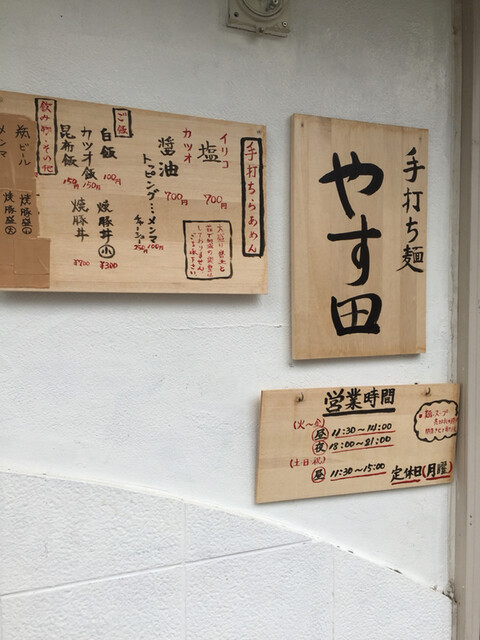 手打ち麺
やす田
手打ち・らあめん
イリコ
塩 700円
カツオ
醤油 700円
トッピング…メンマ 100円
チャーシュー 250円
ご飯
白飯 100円
カツオ飯 150円
昆布飯 150円
焼豚丼小 ¥300
焼豚丼 ¥700
飲み物・その他
瓶ビール
メンマ
焼豚皿小
焼豚皿大
営業時間
(火～金)
昼 11:30～14:00
夜 18:00～21:00
(土日・祝)
昼 11:30～15:00
定休日(月曜)